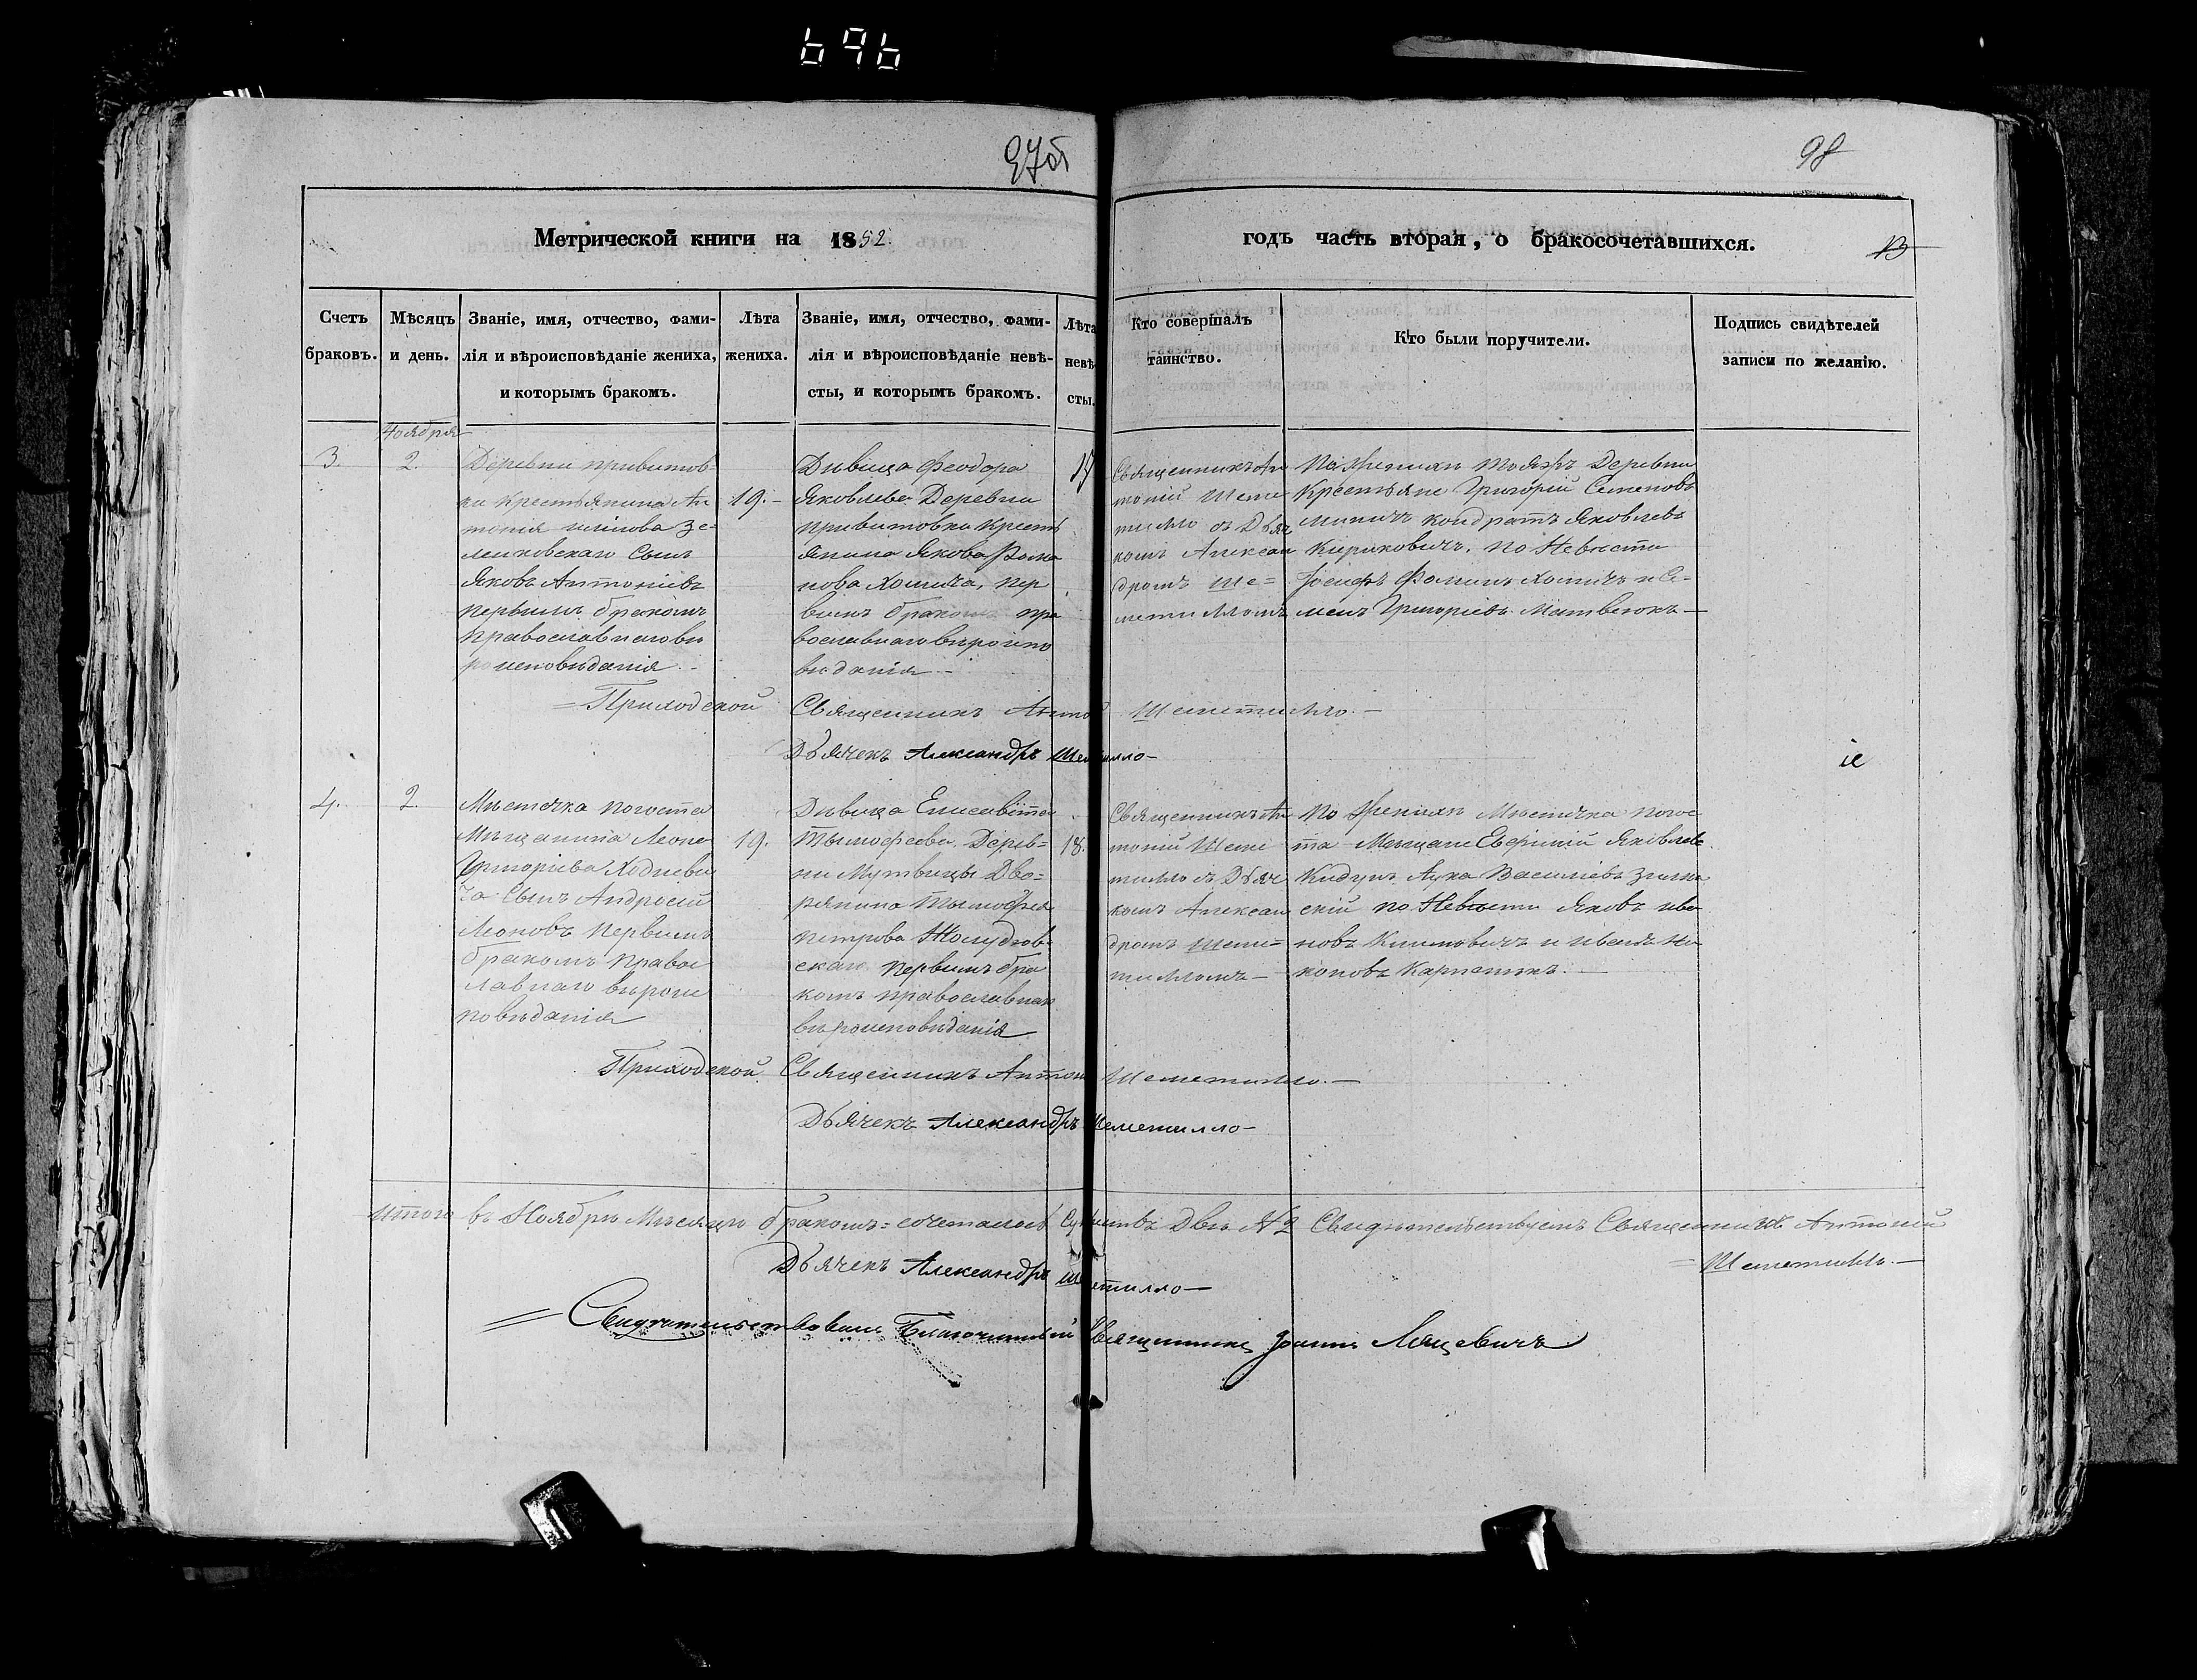 696
97об
98
Метрической книги на 1852.
годъ часть вторая, о бракосочетавшихся.
13
Счетъ браковъ.
Мѣсяцъ и день.
Званіе, имя, отчество, фами-
лія и вѣроисповѣданіе жениха,
и которымъ бракомъ.
Лѣта
жениха.
Званіе, имя, отчество, фами-
лія и вѣроисповѣданіе невѣ-
сты, и которымъ бракомъ.
Лѣта
невѣ-
сты.
Кто совершалъ
таинство.
Кто были поручители.
Подпись свидѣтелей
записи по желанію.
Ноября
3.
2.
Деревни привитов-
ки крестьянина Ан
тонія
ленковскаго сынъ
Яковъ Антоніевъ
первымъ бракомъ
православнаго вѣ
роисповѣданія
19.
Дѣвица Феодора
Яковлева Деревни
привитовки крестъ
янина Якова Рома
нова Хомича, пер
вымъ бракомъ пра
вославнаго вѣроиспо
вѣданія
17
Священникъ Ан
тоній Шеме
тилло съ Дьяч
комъ Алексан
дромъ Ше=
метилломъ
По женихѣ тояжъ Деревни
Крестьяне Григорій Семеновъ
Кондратъ Яковлевъ
Кириковичъ. по Невѣсти
Іосифъ Фоминъ Хомичъ и Се-
менъ Григоріевъ Матвеюкъ
Приходской Священникъ Антоній Шеметилло.
Дьячекъ Александръ Шеметилло
4.
2.
Мѣстечка погоста
Мѣщанина Леона
Григоріева Ходневи
ча Сынъ Андрей
Леоновъ первымъ
бракомъ правос
лавнаго вѣроис
повѣданія
19.
Дѣвица Елисавѣта
Тымофеева Дерев=
ни Мутвицы Дво=
рянина Тымофея
петрова Жолудков-
скаго первымъ бра
комъ православнаго
вѣроисповѣданія
18.
Священникъ Ан
тоній Шеме
тилло съ Дьяч
комъ Алексан
дромъ Шеме=
тилломъ
По Женихѣ Мѣстечка погос
та Мѣщане Евфимій Яковлевъ
Кидунъ Лука Василіевъ
скій по Невѣсти Яковъ Ива
новъ Климовичъ и Иванъ Ни
коновъ
Приходской Священникъ Антоній Шеметилло.
Дьячекъ Александръ Шеметилло
Итого въ Ноябрѣ Мѣсяцѣ бракомъ=сочеталось Супруствъ Двѣ № 2 Свидѣтельствуетъ Священникъ Антоній
Шеметилло.
Дьячекъ Александръ Шеметилло
Свидѣтельствовалъ Благочинный Священникъ Іоаннъ Ляцевичъ